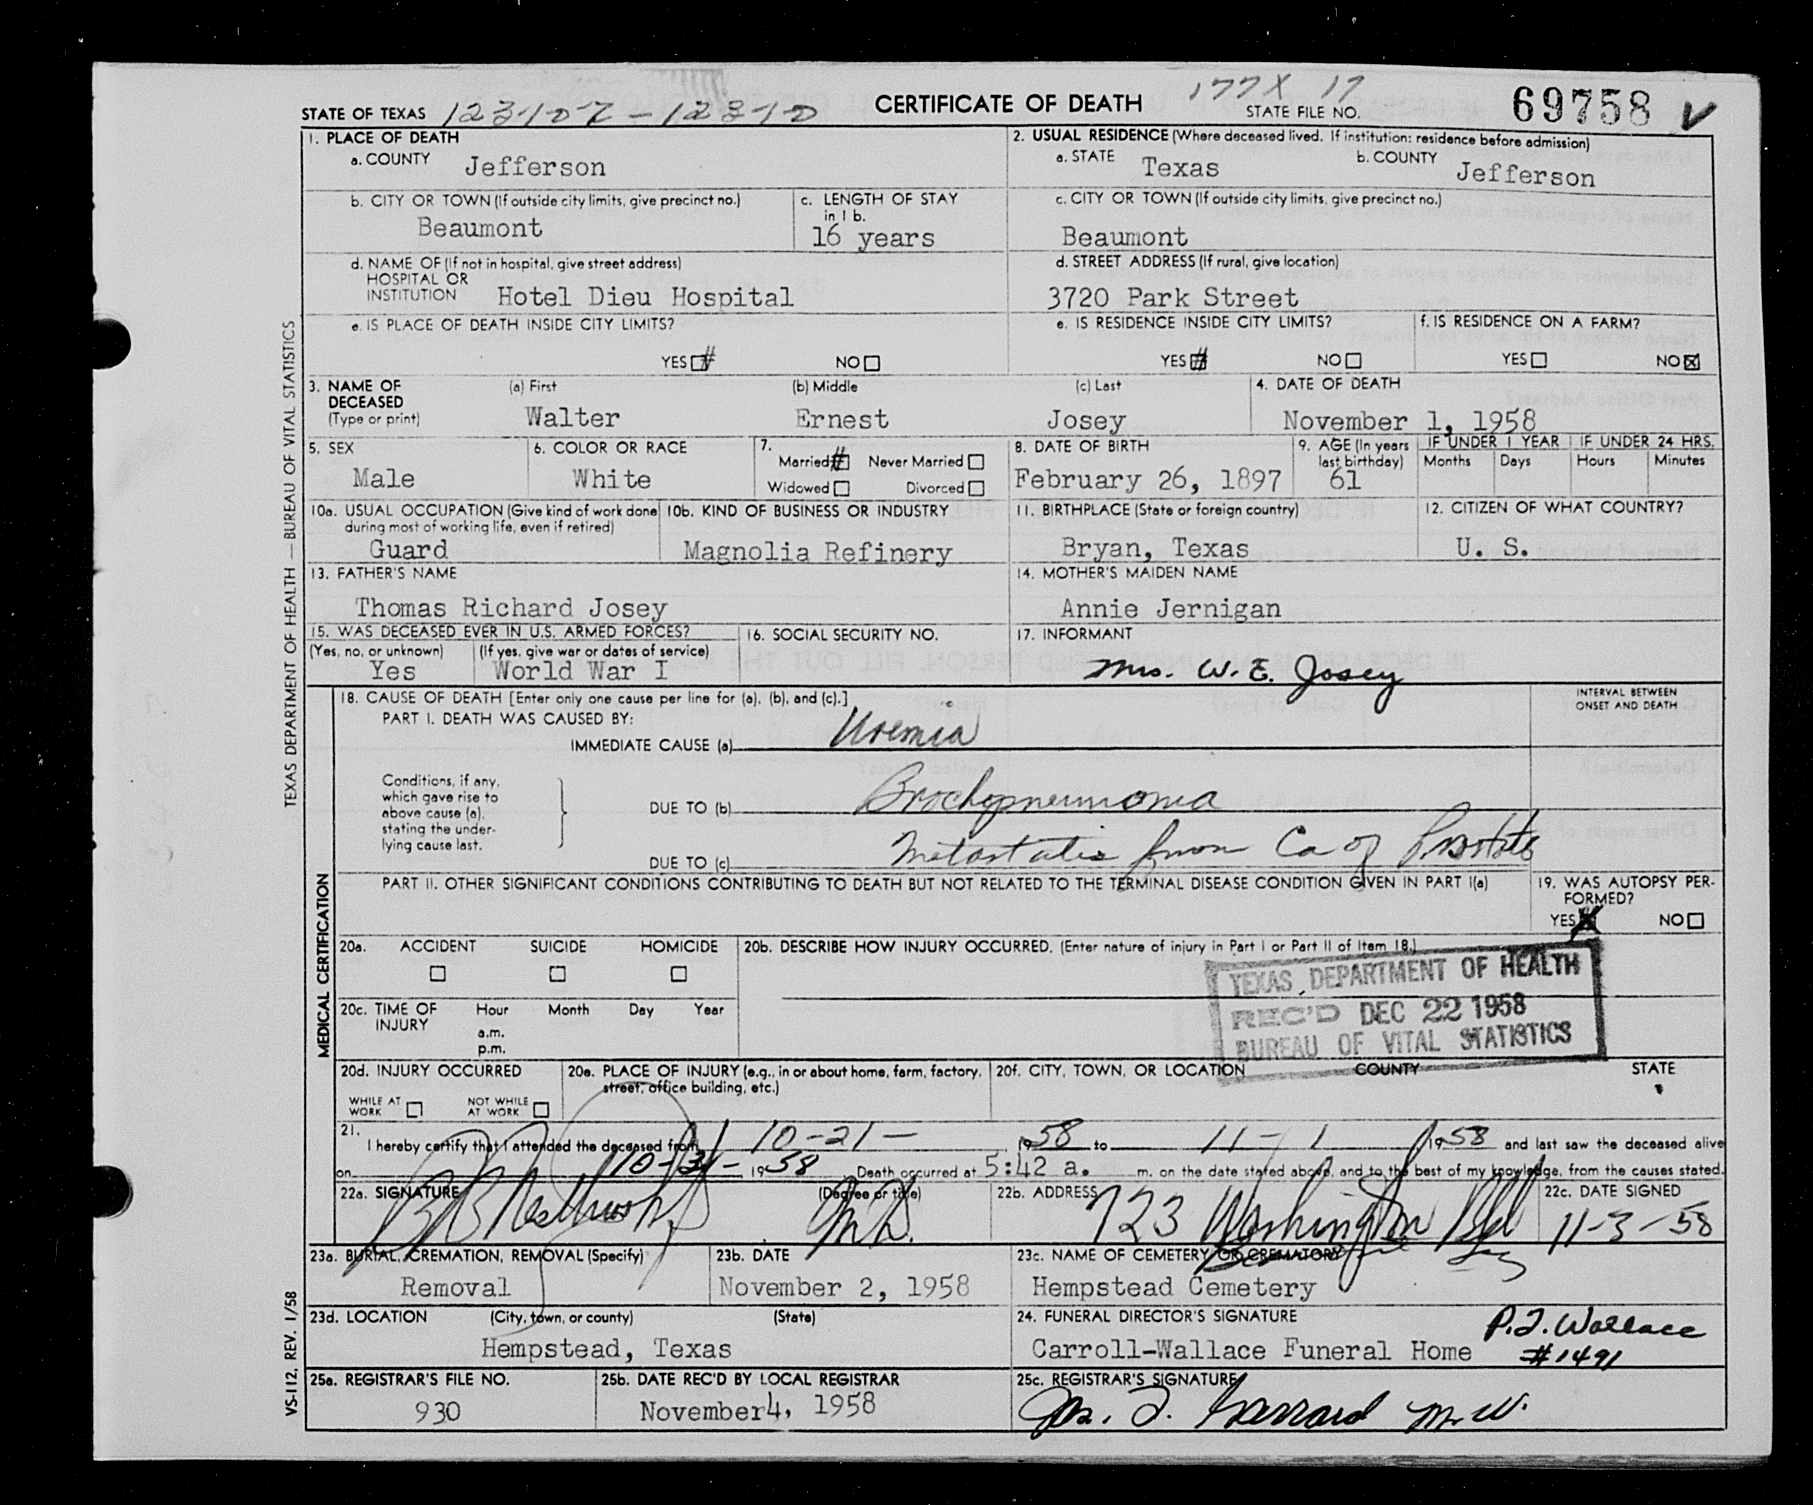 STATE OF TEXAS 123102-12310 CERTIFICATE OF DEATH 177X 17 STATE FILE NO. 69758
1. PLACE OF DEATH
a. COUNTY Jefferson
2. USUAL RESIDENCE (Where deceased lived. If institution: residence before admission)
a. STATE Texas b. COUNTY Jefferson
b. CITY OR TOWN (If outside city limits, give precinct no.)
Beaumont
c. LENGTH OF STAY
in 1 b.
16 years
c. CITY OR TOWN (If outside city limits, give precinct no.)
Beaumont
d. NAME OF (If not in hospital, give street address)
HOSPITAL OR
INSTITUTION Hotel Dieu Hospital
d. STREET ADDRESS (If rural, give location)
3720 Park Street
e. IS PLACE OF DEATH INSIDE CITY LIMITS?
YES # NO
e. IS RESIDENCE INSIDE CITY LIMITS?
YES # NO
f. IS RESIDENCE ON A FARM?
YES NO X
3. NAME OF DECEASED
(Type or print)
(a) First (b) Middle (c) Last
Walter Ernest Josey
4. DATE OF DEATH
November 1, 1958
5. SEX
Male
6. COLOR OR RACE
White
7.
Married # Never Married
Widowed Divorced
8. DATE OF BIRTH
February 26, 1897
9. AGE (In years
last birthday)
61
IF UNDER 1 YEAR IF UNDER 24 HRS.
Months Days Hours Minutes
10a. USUAL OCCUPATION (Give kind of work done
during most of working life, even if retired)
Guard
10b. KIND OF BUSINESS OR INDUSTRY
Magnolia Refinery
11. BIRTHPLACE (State or foreign country)
Bryan, Texas
12. CITIZEN OF WHAT COUNTRY?
U. S.
13. FATHER'S NAME
Thomas Richard Josey
14. MOTHER'S MAIDEN NAME
Annie Jernigan
15. WAS DECEASED EVER IN U.S. ARMED FORCES?
(Yes, no, or unknown) (If yes, give war or dates of service)
Yes World War I
16. SOCIAL SECURITY NO.
17. INFORMANT
Mrs. W. E. Josey
18. CAUSE OF DEATH [Enter only one cause per line for (a), (b), and (c).]
PART I. DEATH WAS CAUSED BY:
IMMEDIATE CAUSE (a) Uremia
INTERVAL BETWEEN
ONSET AND DEATH
Conditions, if any,
which gave rise to
above cause (a),
stating the under-
lying cause last.
DUE TO (b) Brochopneumonia
DUE TO (c) Metastatis from Ca of Prostate
PART II. OTHER SIGNIFICANT CONDITIONS CONTRIBUTING TO DEATH BUT NOT RELATED TO THE TERMINAL DISEASE CONDITION GIVEN IN PART I(a)
19. WAS AUTOPSY PER-
FORMED?
YES X NO
20a. ACCIDENT SUICIDE HOMICIDE
20b. DESCRIBE HOW INJURY OCCURRED. (Enter nature of injury in Part I or Part II of Item 18.)
TEXAS DEPARTMENT OF HEALTH
REC'D DEC 22 1958
BUREAU OF VITAL STATISTICS
20c. TIME OF
INJURY
Hour Month Day Year
a.m.
p.m.
20d. INJURY OCCURRED
WHILE AT
WORK
NOT WHILE
AT WORK
20e. PLACE OF INJURY (e.g., in or about home, farm, factory,
street, office building, etc.)
20f. CITY, TOWN, OR LOCATION COUNTY STATE
21.
I hereby certify that I attended the deceased from 10-21- 1958 to 11-1 1958 and last saw the deceased alive
on 10-31- 1958. Death occurred at 5:42 a. m. on the date stated above, and to the best of my knowledge, from the causes stated.
22a. SIGNATURE (Degree or title)
M.D.
22b. ADDRESS
723 Washington Bld
22c. DATE SIGNED
11-3-58
23a. BURIAL, CREMATION, REMOVAL (Specify)
Removal
23b. DATE
November 2, 1958
23c. NAME OF CEMETERY OR CREMATORY
Hempstead Cemetery
23d. LOCATION (City, town, or county) (State)
Hempstead, Texas
24. FUNERAL DIRECTOR'S SIGNATURE
Carroll-Wallace Funeral Home
P.J. Wallace
#1491
25a. REGISTRAR'S FILE NO.
930
25b. DATE REC'D BY LOCAL REGISTRAR
November 4, 1958
25c. REGISTRAR'S SIGNATURE
TEXAS DEPARTMENT OF HEALTH — BUREAU OF VITAL STATISTICS
MEDICAL CERTIFICATION
VS-112, REV. 1/58